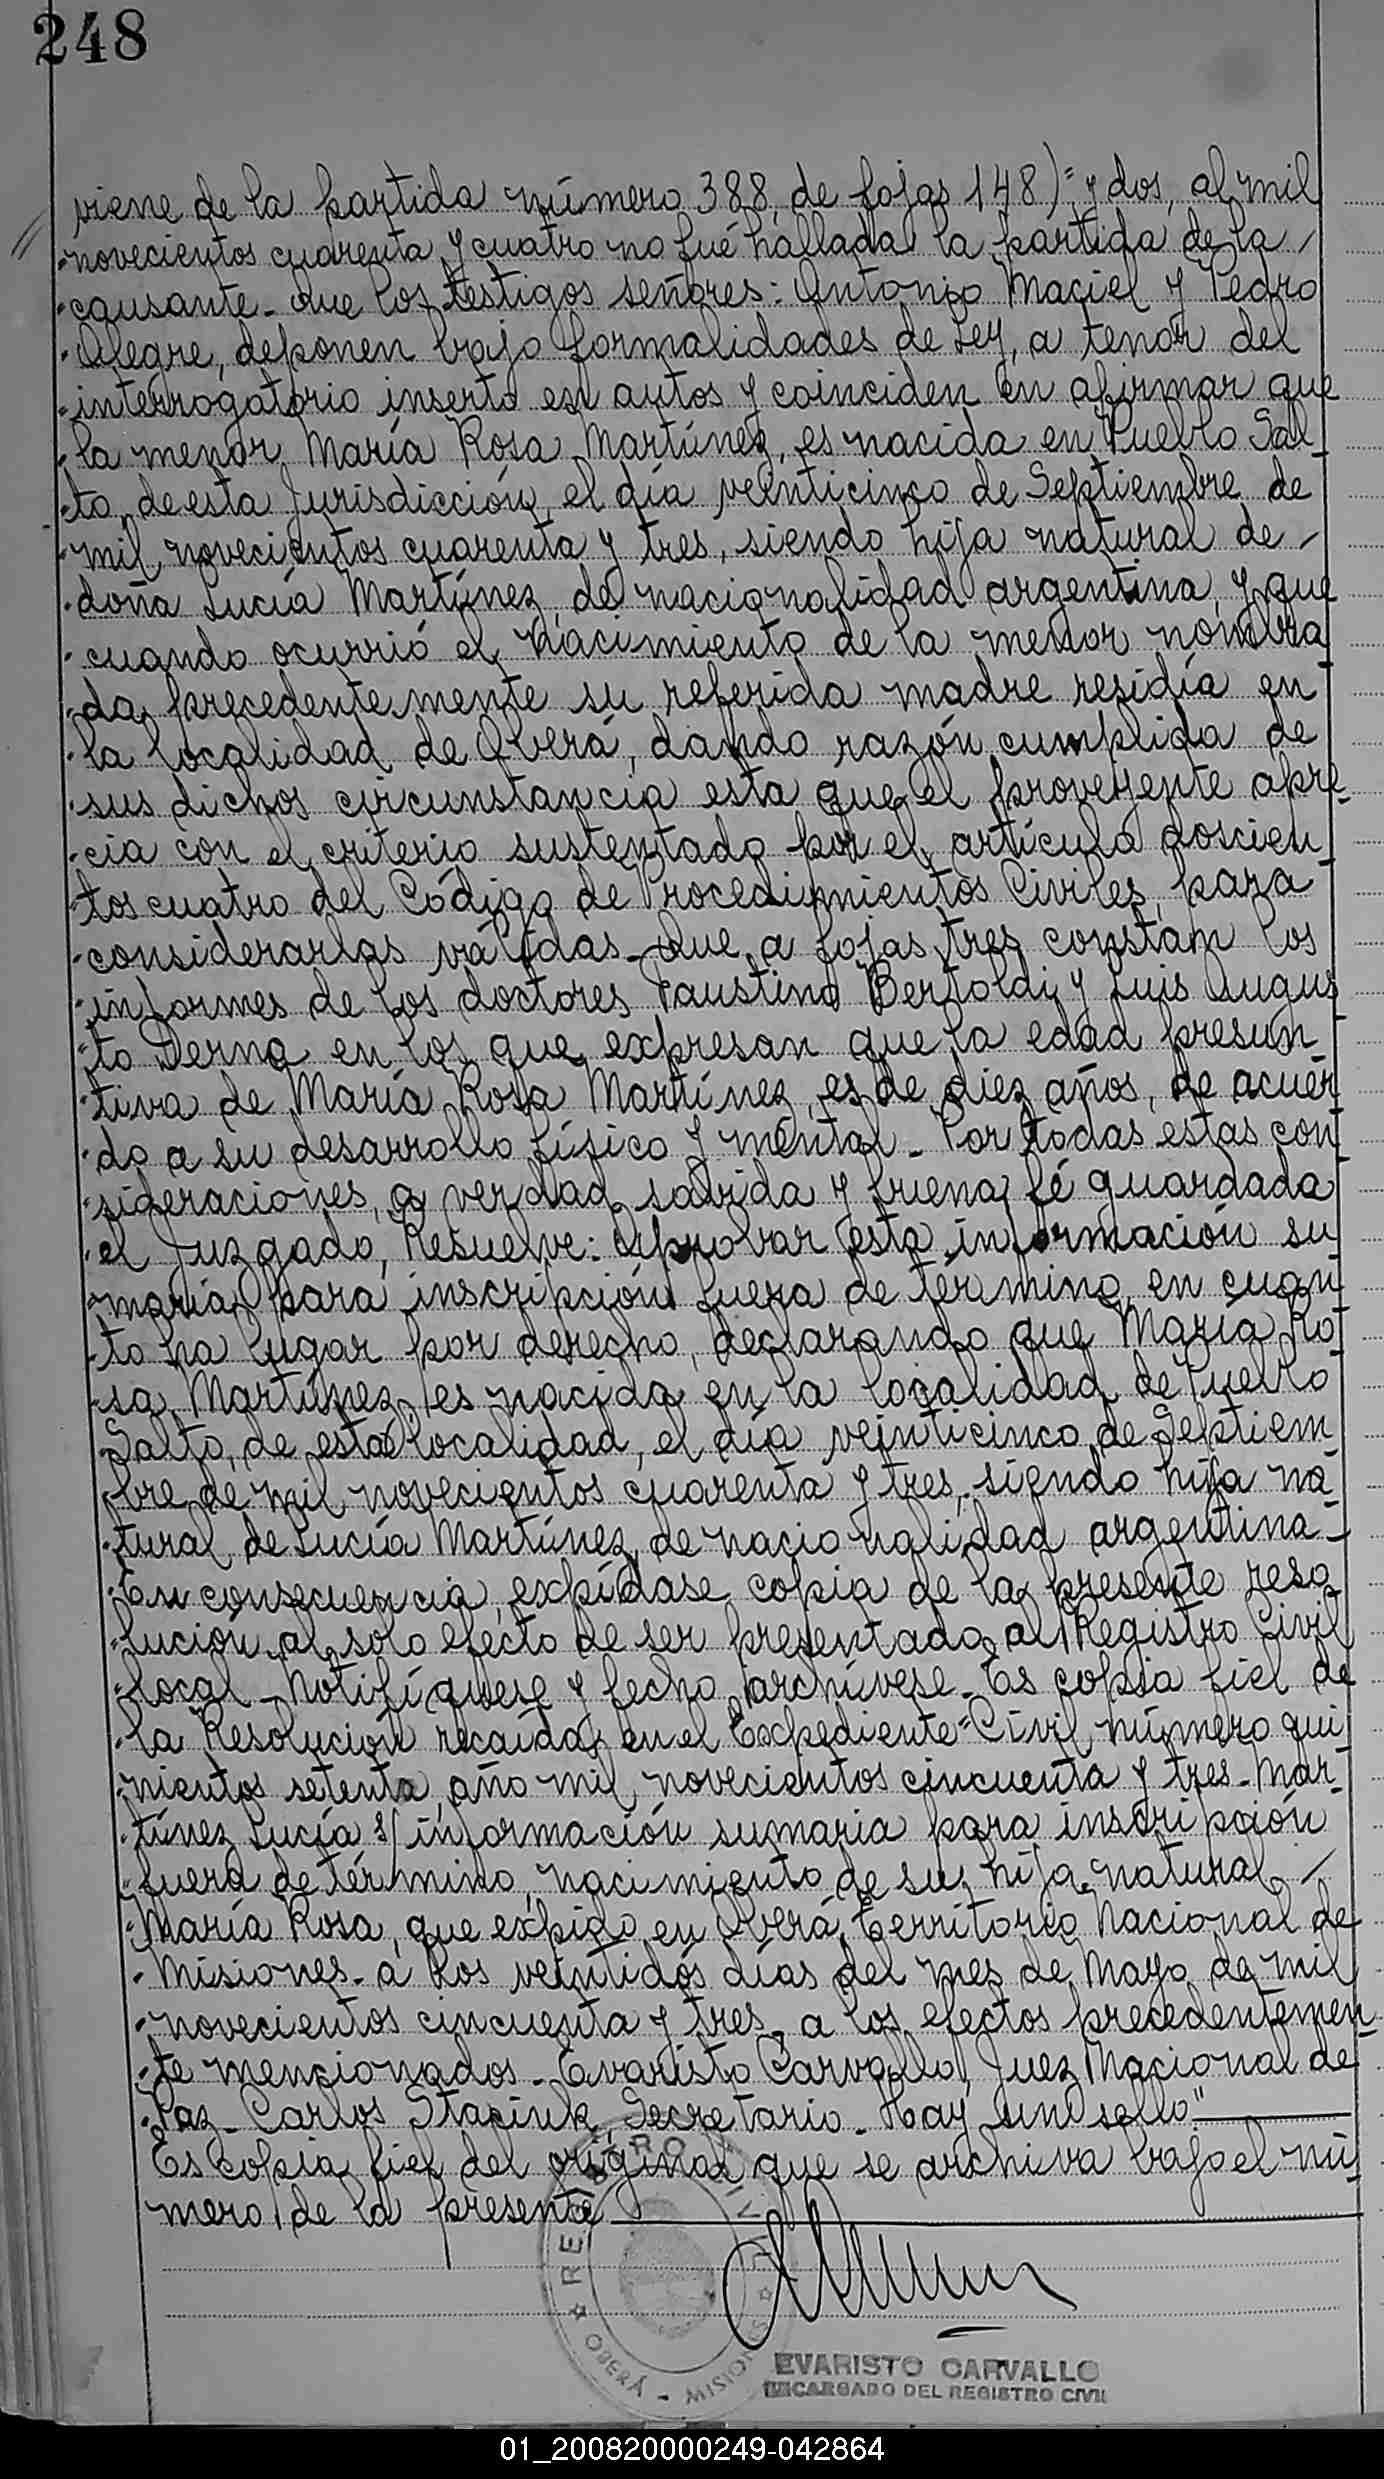 248
viene de la partida número 388, de fojas 148)="y dos, al mil
novecientos cuarenta y cuatro no fué hallada la partida de la
causante.- Que los testigos señores: Antonio Maciel y Pedro
Alegre, deponen bajo formalidades de Ley, a tenor del
interrogatorio inserto en autos y coinciden en afirmar que
la menor María Rosa Martínez, es nacida en Pueblo Sal-
to, de esta Jurisdicción, el día veinticinco de Septiembre de
mil novecientos cuarenta y tres, siendo hija natural de
doña Lucía Martínez, de nacionalidad argentina, y que
cuando ocurrió el nacimiento de la menor nombra-
da precedentemente su referida madre residía en
la localidad de Oberá, dando razón cumplida de
sus dichos circunstancia esta que el proveyente apre-
cia con el criterio sustentado por el artículo doscien-
tos cuatro del Código de Procedimientos Civiles, para
considerarlas válidas.- Que a fojas tres constan los
informes de los doctores Faustino Bertoldi y Luis Augus-
to Derna en los que expresan que la edad presun-
tiva de María Rosa Martínez, es de diez años, de acuer-
do a su desarrollo físico y mental.- Por todas estas con-
sideraciones, a verdad sabida y buena fé guardada
el Juzgado, Resuelve: Aprobar esta información su-
maria para inscripción fuera de término, en cuan-
to ha lugar por derecho, declarando que María Ro-
sa Martínez, es nacida en la localidad de Pueblo
Salto, de esta localidad, el día veinticinco de Septiem-
bre de mil novecientos cuarenta y tres, siendo hija na-
tural de Lucía Martínez, de nacionalidad argentina.-
En consecuencia, expídase copia de la presente reso-
lución, al solo efecto de ser presentada al Registro Civil
local.- Notifíquese y fecho, archívese.- Es copia fiel de
la Resolución recaída en el Expediente "Civil número qui-
nientos setenta, año mil novecientos cincuenta y tres.- Mar-
tínez Lucía s/ información sumaria para inscripción
fuera de término, nacimiento de su hija natural
María Rosa, que expido en Oberá, Territorio Nacional de
Misiones.- a los veintidós días del mes de Mayo de mil
novecientos cincuenta y tres, a los efectos precedentemen-
te mencionados.- Evaristo Carvallo, Juez Nacional de
Paz.- Carlos Staciuk, Secretario.- Hay un sello"
Es copia fiel del original que se archiva bajo el nú-
mero de la presente
REGISTRO CIVIL
OBERÁ - MISIONES
EVARISTO CARVALLO
ENCARGADO DEL REGISTRO CIVIL
01_200820000249-042864